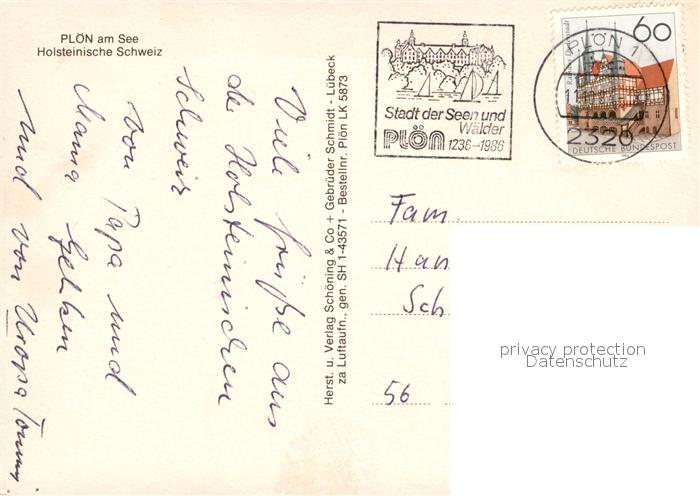 PLÖN am See
Holsteinische Schweiz
Viele Grüße aus
der Holsteinischen
Schweiz
von Papa und
Mama
und von Uropa Tommy
Herst. u. Verlag Schöning & Co + Gebrüder Schmidt - Lübeck
za Luftaufn., gen. SH 1-43571 - Bestellnr. Plön LK 5873
Stadt der Seen und
Wälder
PLÖN 1236-1986
60
PLÖN 1
2320
DEUTSCHE BUNDESPOST
Fam.
Han
Sch
56
privacy protection
Datenschutz